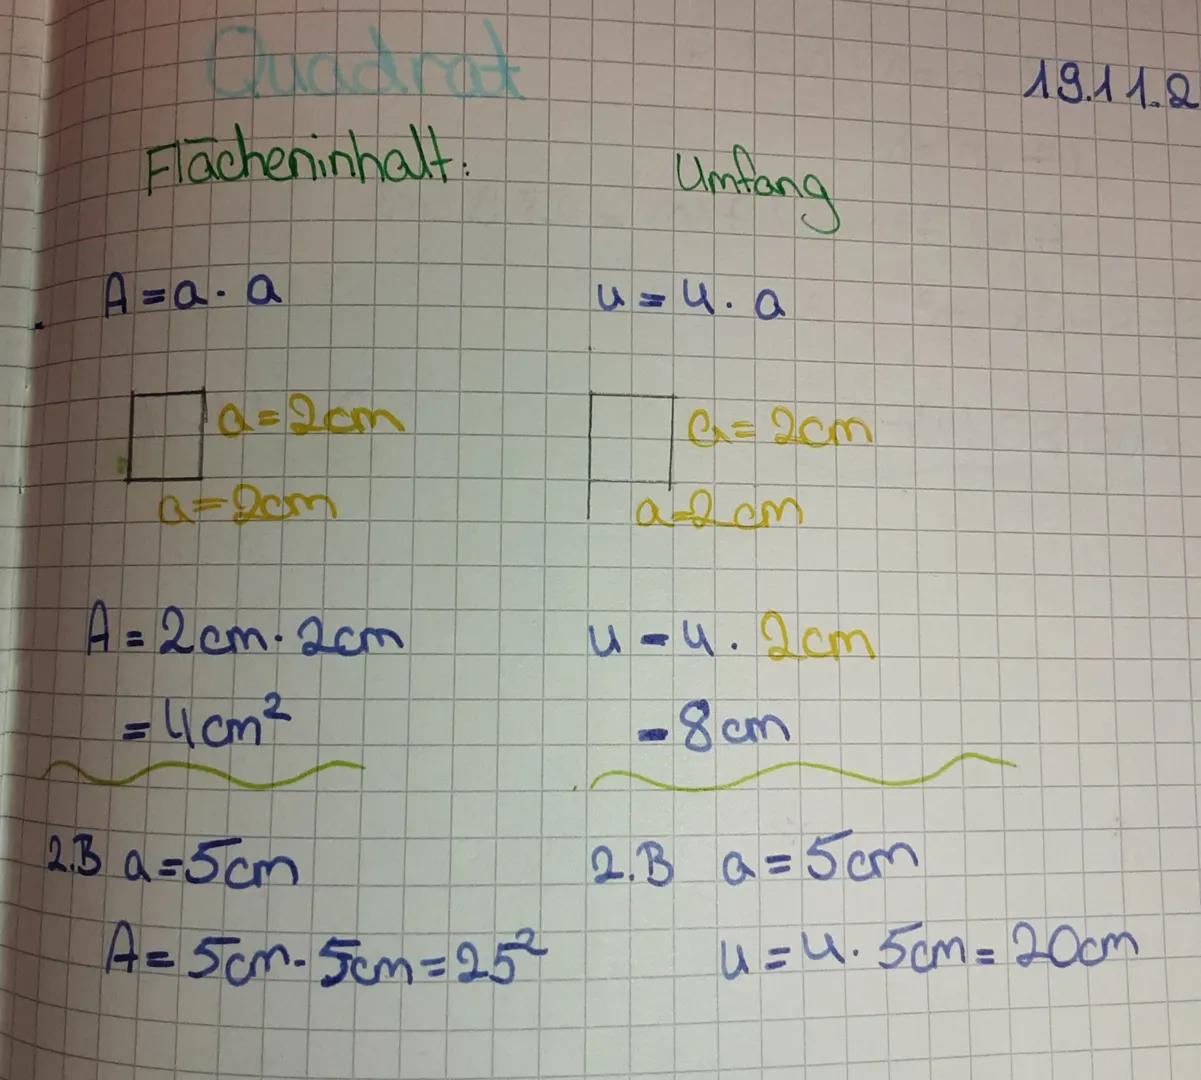 Quadrat
19.11.2
Flächeninhalt:
Umfang
A = a · a
u = 4 · a
a = 2cm
a = 2cm
a = 2cm
a = 2cm
A = 2cm · 2cm
= 4cm²
u = 4 · 2cm
= 8cm
2.B a = 5cm
A = 5cm · 5cm = 25²
2.B a = 5cm
u = 4 · 5cm = 20cm